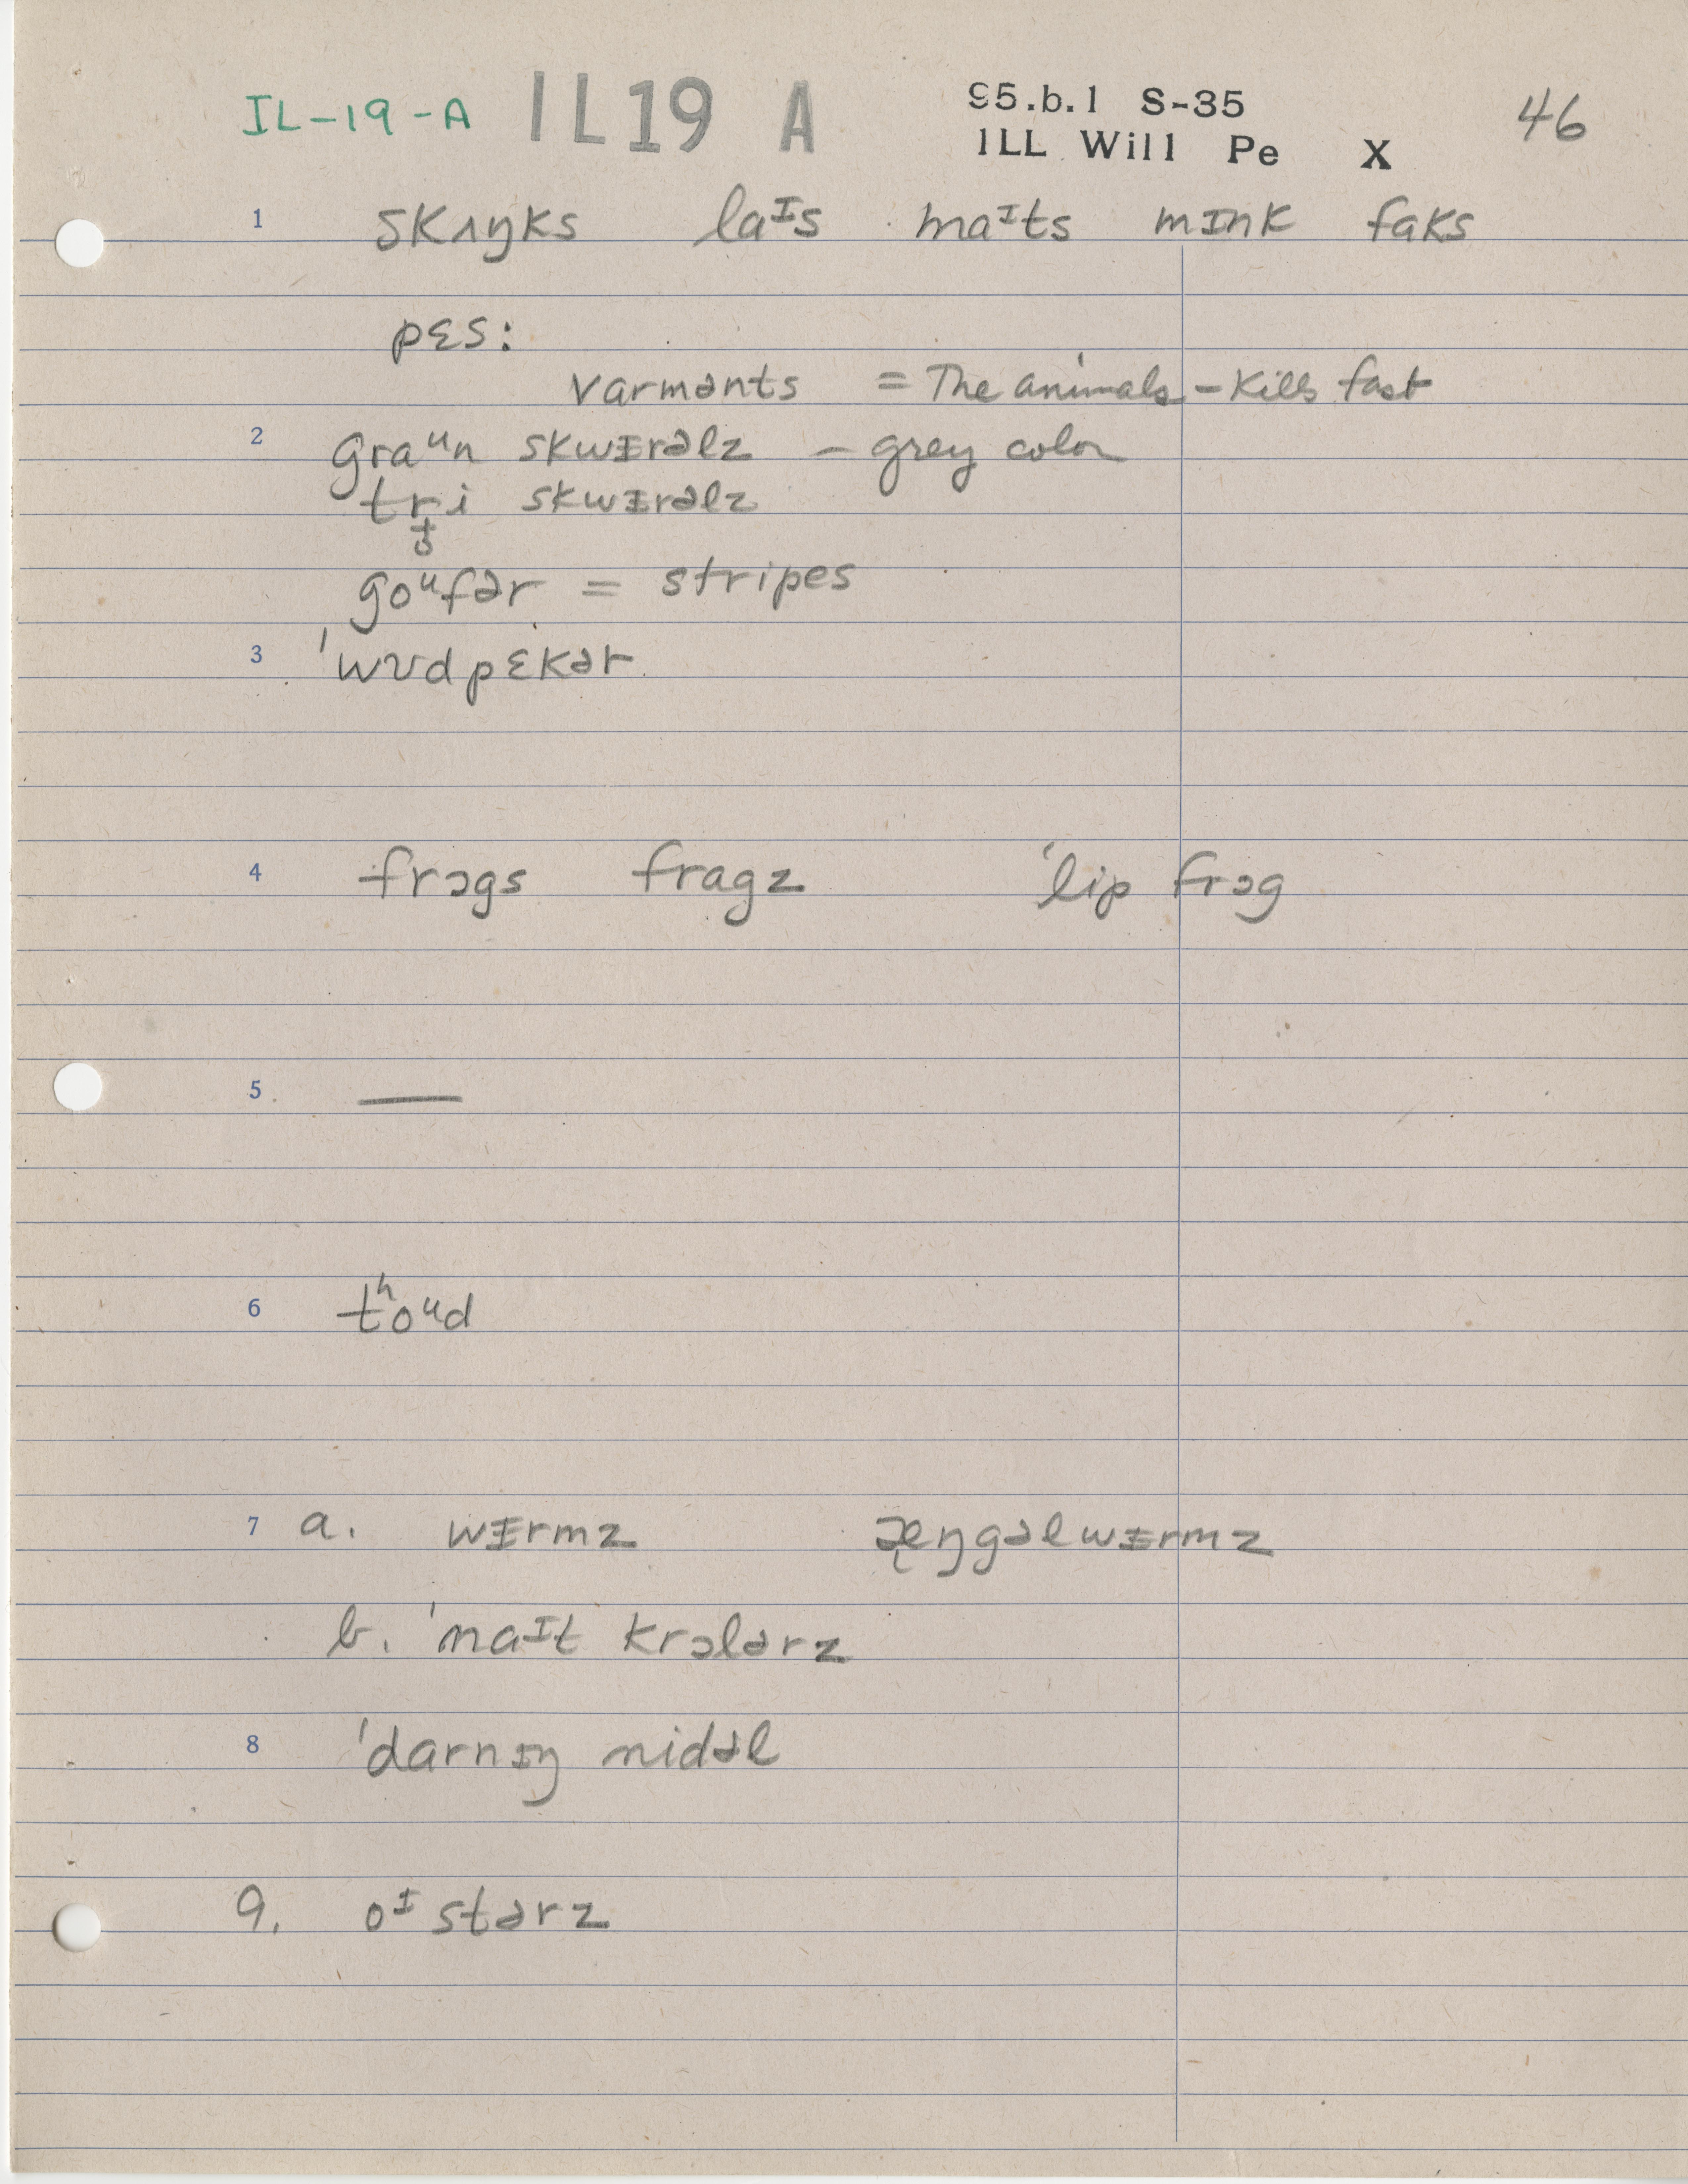 IL-19-A IL19 A 95.b.1 S-35 46
ILL Will Pe X
1 skʌŋks laᶦs maᶦts mɪnk faks
pɛs:
varmənts = The animals - Kills fast
2 graᵘn skwɨrəlz - grey color
tri skwɨrəlz
goᵘfər = stripes
3 ˈwʊdpɛkər
4 frɔgs fragz ˈlip frɔg
5 —
6 tʰoᵘd
7 a. wɨrmz æ̨ŋgəlwɨrmz
b. ˈnaᶦt krɔlərz
8 ˈdarnɪŋ nidəl
9. oᶦstərz